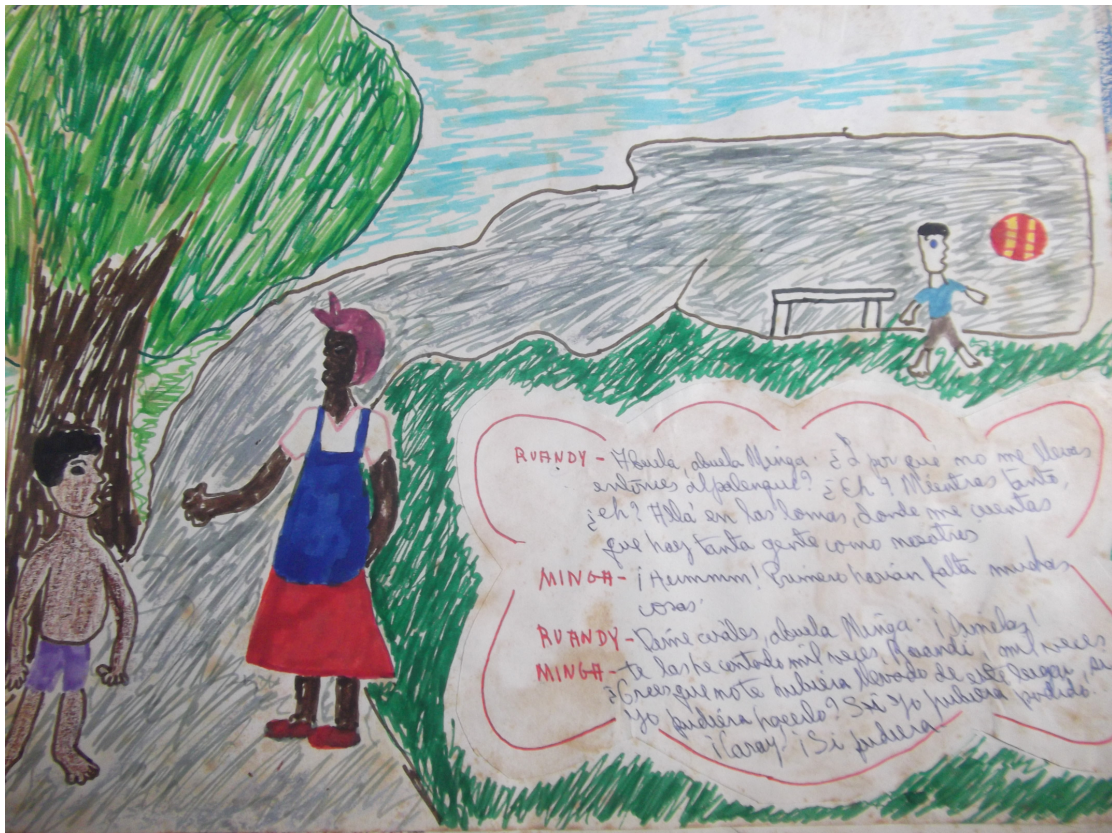 RUANDY - Abuela, abuela Minga. ¿Y por qué no me llevas
entonces al palenque? ¿Eh? Mientras tanto,
¿eh? Allá en las lomas, donde me cuentas
que hay tanta gente como nosotros
MINGA - ¡Hummm! Primero harían falta muchas
cosas.
RUANDY - Dime cuáles, abuela Minga. ¡Dímelas!
MINGA - te las he contado mil veces, Ruandi, mil veces.
¿Crees que no te hubiera llevado de este lugar, si
yo pudiera hacerlo? Si yo hubiera podido
¡Caray! ¡Si pudiera